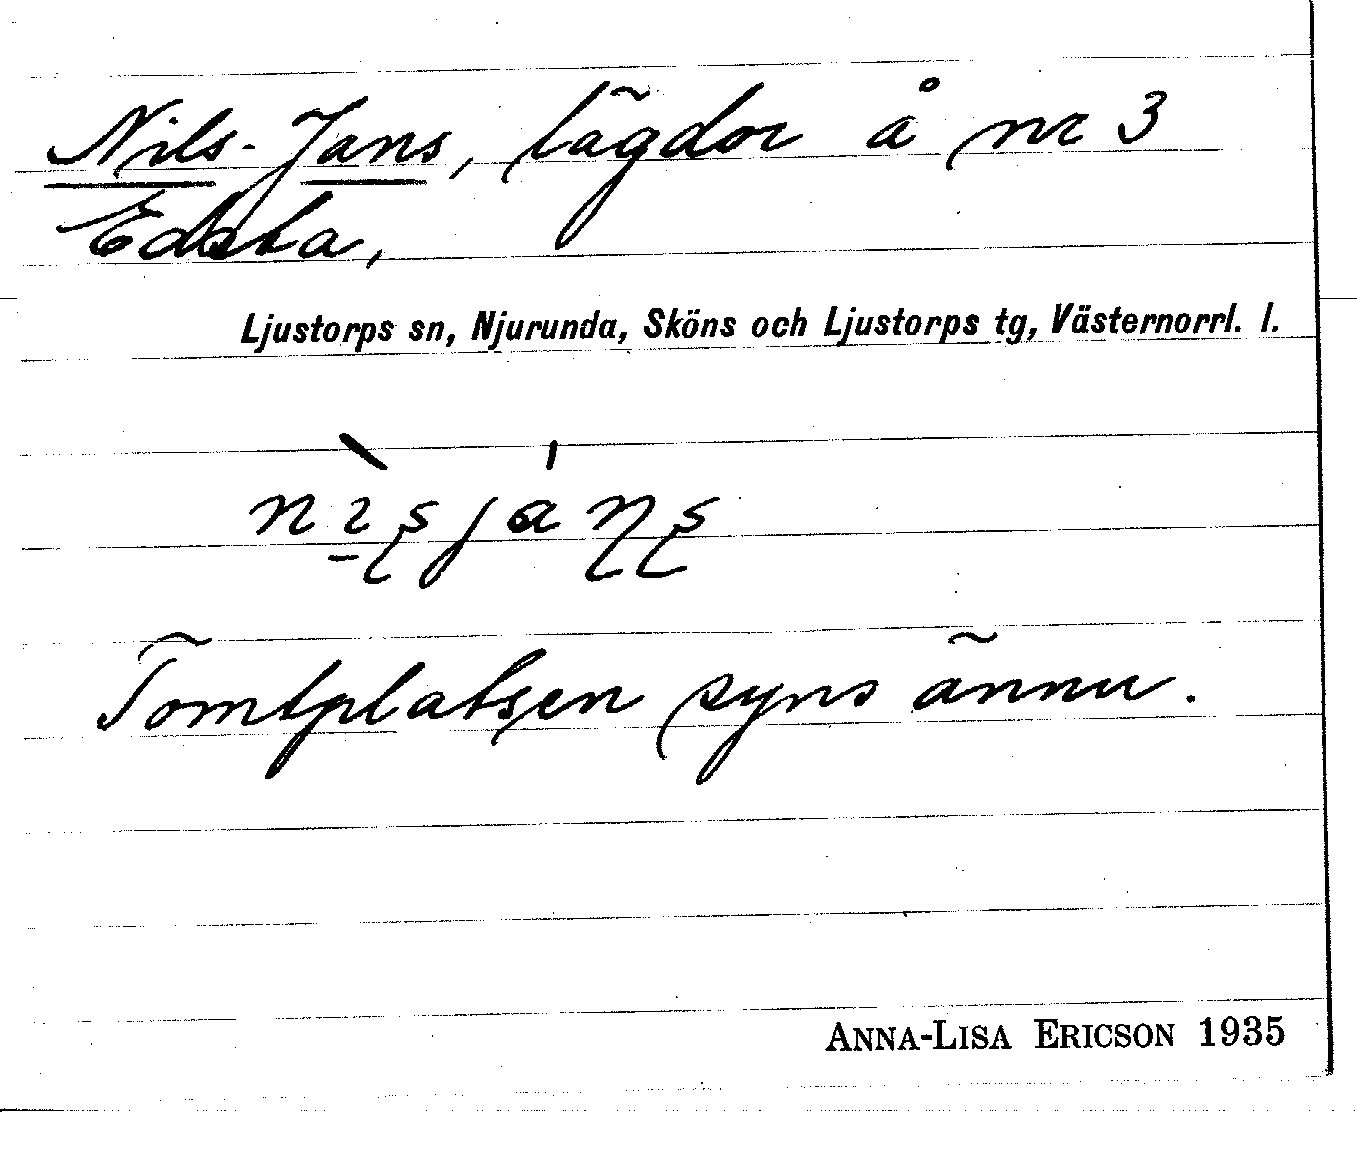 Nils-Jans, lägdor å nr 3
Edsta,
Ljustorps sn, Njurunda, Sköns och Ljustorps tg, Västernorrl. l.
Tomtplatsen syns ännu.
ANNA-LISA ERICSON 1935